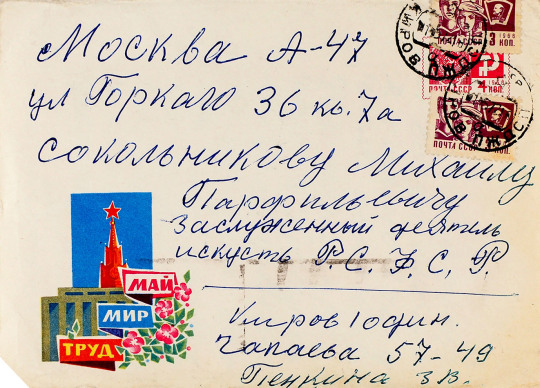 Москва А-47
ул Горкаго 36 кв. 7а
Сокольникову Михаилу
Парфильевичу
Заслуженный деятель
искусств Р.С.Ф.С.Р.
Киров 1 один.
Чапаева 57-49
Пенкина З.В.
МАЙ
МИР
ТРУД
3 КОП.
ПОЧТА СССР
4 КОП.
ПОЧТА СССР
КИРОВ